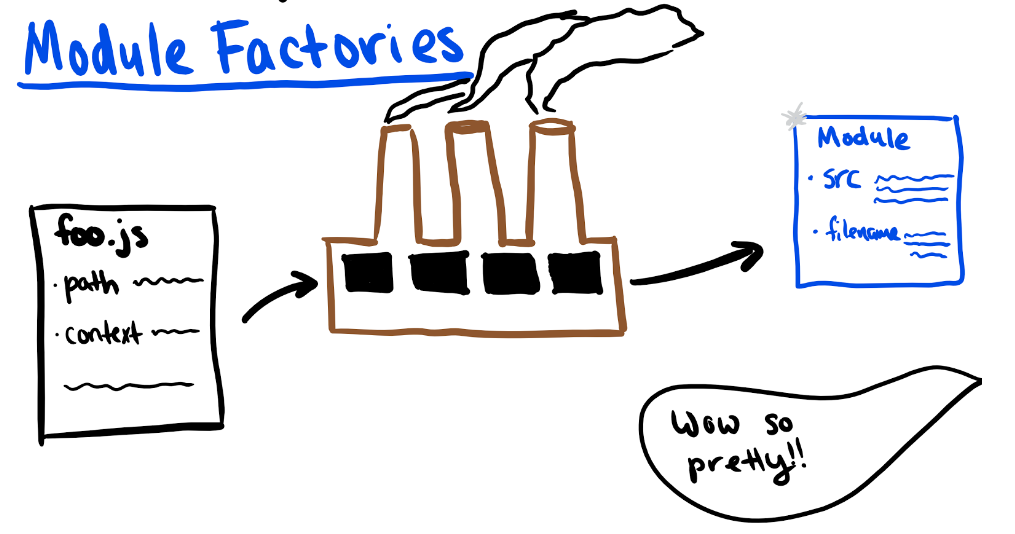 Module Factories
foo.js
· path
· context
Module
· src
· filename
Wow so
pretty!!